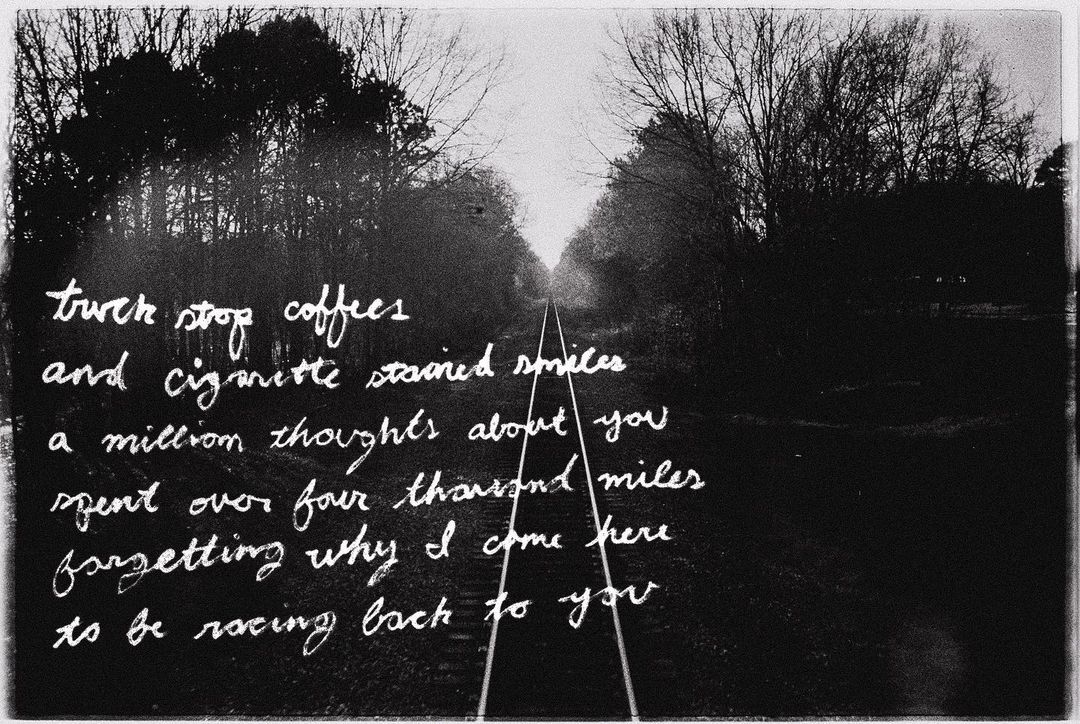 truck stop coffees
and cigarette stained smiles
a million thoughts about you
spent over four thousand miles
forgetting why I come here
to be racing back to you